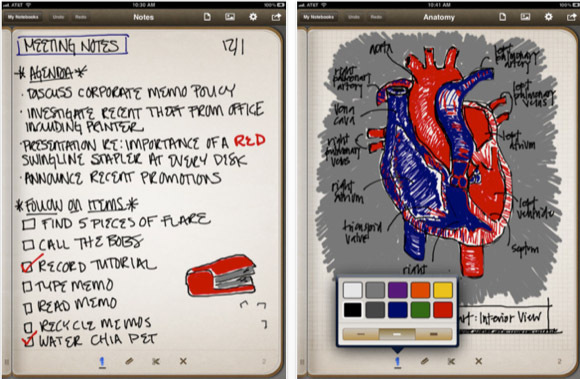 AT&T
10:30 AM
My Notebooks
Undo
Redo
Notes
MEETING NOTES
12/1
*AGENDA*
· DISCUSS CORPORATE MEMO POLICY
· INVESTIGATE RECENT THEFT FROM OFFICE
INCLUDING PRINTER
· PRESENTATION RE: IMPORTANCE OF A RED
SWINGLINE STAPLER AT EVERY DISK
· ANNOUNCE RECENT PROMOTIONS
*FOLLOW ON ITEMS*
FIND 5 PIECES OF FLARE
CALL THE BOBS
RECORD TUTORIAL
TYPE MEMO
READ MEMO
RECYCLE MEMOS
WATER CHIA PET
2
AT&T
10:41 AM
My Notebooks
Undo
Redo
Anatomy
aorta
left
pulmonary
artery
right
pulmonary
artery
left
pulmonary
veins
vena
cava
right
pulmonary
veins
left
atrium
right
atrium
left
ventricle
septum
right
: Interior View
2